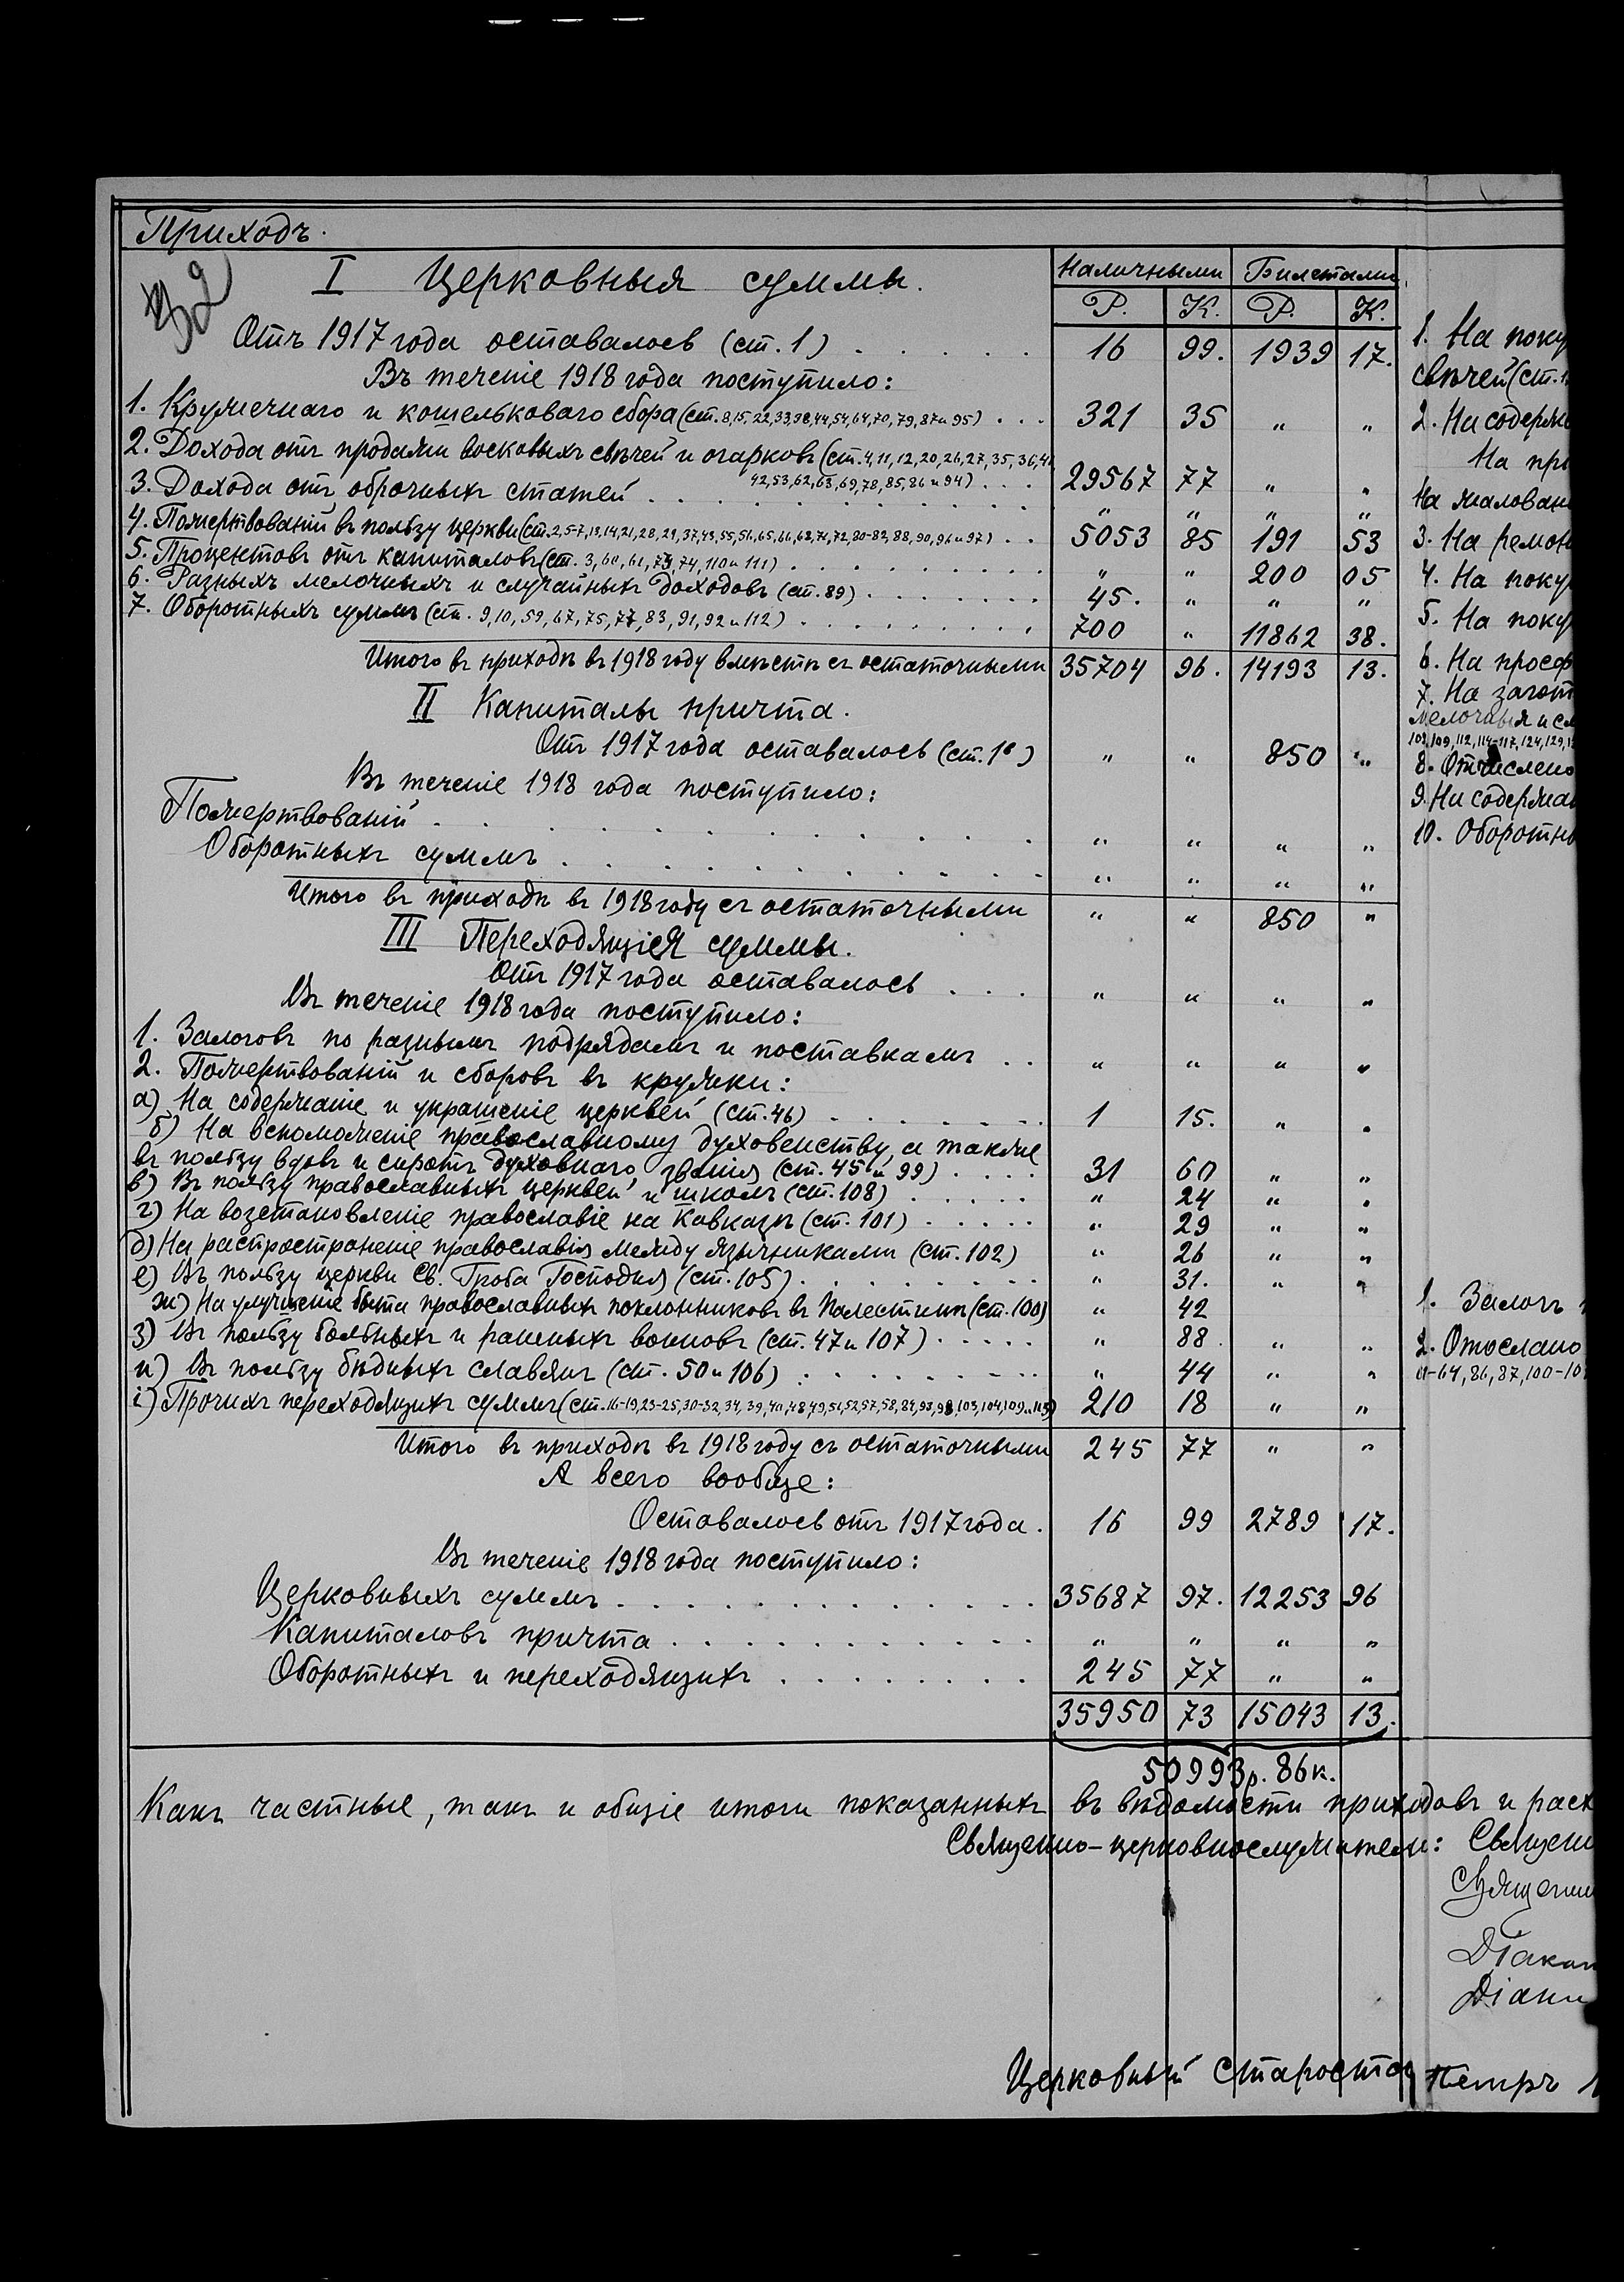 Приходъ.
I Церковныя суммы.
Наличными Билетами
Р. К. Р. К.
Отъ 1917 года оставалось (ст. 1) . . . . . 16 99. 1939 17.
Въ теченіе 1918 года поступило:
1. Кружечнаго и кошельковаго сбора (ст. 8, 15, 22, 33, 38, 44, 54, 64, 70, 79, 87 и 95) . . . 321 35 „ „
2. Дохода отъ продажи восковыхъ свѣчей и огарковъ (ст. 4, 11, 12, 20, 26, 27, 35, 36, 41
42, 53, 62, 63, 69, 78, 85, 86 и 94) . . . 29567 77 „ „
3. Дохода отъ оброчныхъ статей . . . „ „ „ „
4. Пожертвованій въ пользу церкви (ст. 2, 5-7, 13, 14, 21, 28, 29, 37, 43, 55, 56, 65, 66, 68, 71, 72, 80-82, 88, 90, 96 и 97) . . 5053 85 191 53
5. Процентовъ отъ капиталовъ (ст. 3, 60, 61, 73, 74, 110 и 111) . . . „ „ 200 05
6. Разныхъ мелочныхъ и случайныхъ доходовъ (ст. 89) . . . 45. „ „ „
7. Оборотныхъ суммъ (ст. 9, 10, 59, 67, 75, 77, 83, 91, 92 и 112) . . . 700 „ 11862 38.
Итого въ приходѣ въ 1918 году вмѣстѣ съ остаточными 35704 96. 14193 13.
II Капиталы причта.
Отъ 1917 года оставалось (ст. 1ᵃ) „ „ 850 „
Въ теченіе 1918 года поступило:
Пожертвованій . . . „ „ „ „
Оборотныхъ суммъ . . . „ „ „ „
Итого въ приходѣ въ 1918 году съ остаточными „ „ 850 „
III Переходящія суммы.
Отъ 1917 года оставалось . . . „ „ „ „
Въ теченіе 1918 года поступило:
1. Залоговъ по разнымъ подрядамъ и поставкамъ . . „ „ „ „
2. Пожертвованій и сборовъ въ кружки:
а) На содержаніе и украшеніе церквей (ст. 46) . . . 1 15. „ „
б) На вспоможеніе православному духовенству, а также
въ пользу вдовъ и сиротъ духовнаго званія (ст. 45 и 99) . . . 31 60 „ „
в) Въ пользу православныхъ церквей и школъ (ст. 108) . . . „ 24 „ „
г) На возстановленіе православіе на Кавказѣ (ст. 101) . . . „ 29 „ „
д) На распространеніе православія между язычниками (ст. 102) „ 26 „ „
е) Въ пользу церкви Св. Гроба Господня (ст. 105) . . . „ 31. „ „
ж) На улучшеніе быта православныхъ поклонниковъ въ Палестинѣ (ст. 100) „ 42
з) Въ пользу больныхъ и раненыхъ воиновъ (ст. 47 и 107) . . . „ 88 „ „
и) Въ пользу бѣдныхъ славянъ (ст. 50 и 106) . . . „ 44 „ „
і) Прочихъ переходящихъ суммъ (ст. 16-19, 23-25, 30-32, 34, 39, 40, 48, 49, 51, 52, 57, 58, 84, 93, 98, 103, 104, 109 и 113) 210 18 „ „
Итого въ приходѣ въ 1918 году съ остаточными 245 77 „ „
А всего вообще:
Оставалось отъ 1917 года. 16 99 2789 17.
Въ теченіе 1918 года поступило:
Церковныхъ суммъ . . . 35687 97. 12253 96
Капиталовъ причта . . . „ „ „ „
Оборотныхъ и переходящихъ . . . 245 77 „ „
35950 73 15043 13.
50993 р. 86 к.
Какъ частные, такъ и общіе итоги показанныхъ въ вѣдомости приходовъ и расх
Священно-церковнослужители: Священ
Священ
Діакон
Діакн
Церковный староста Петръ
1. На поку
свѣчей (ст. 1
2. На содерж
На пр
На жалован
3. На ремон
4. На поку
5. На поку
6. На просф
7. На загот
мелочныя и сл
108, 109, 112, 114-117, 124, 129, 1
8. Отчислено
9. На содержан
10. Оборотн
1. Залогъ
2. Отослано
64, 86, 87, 100-10